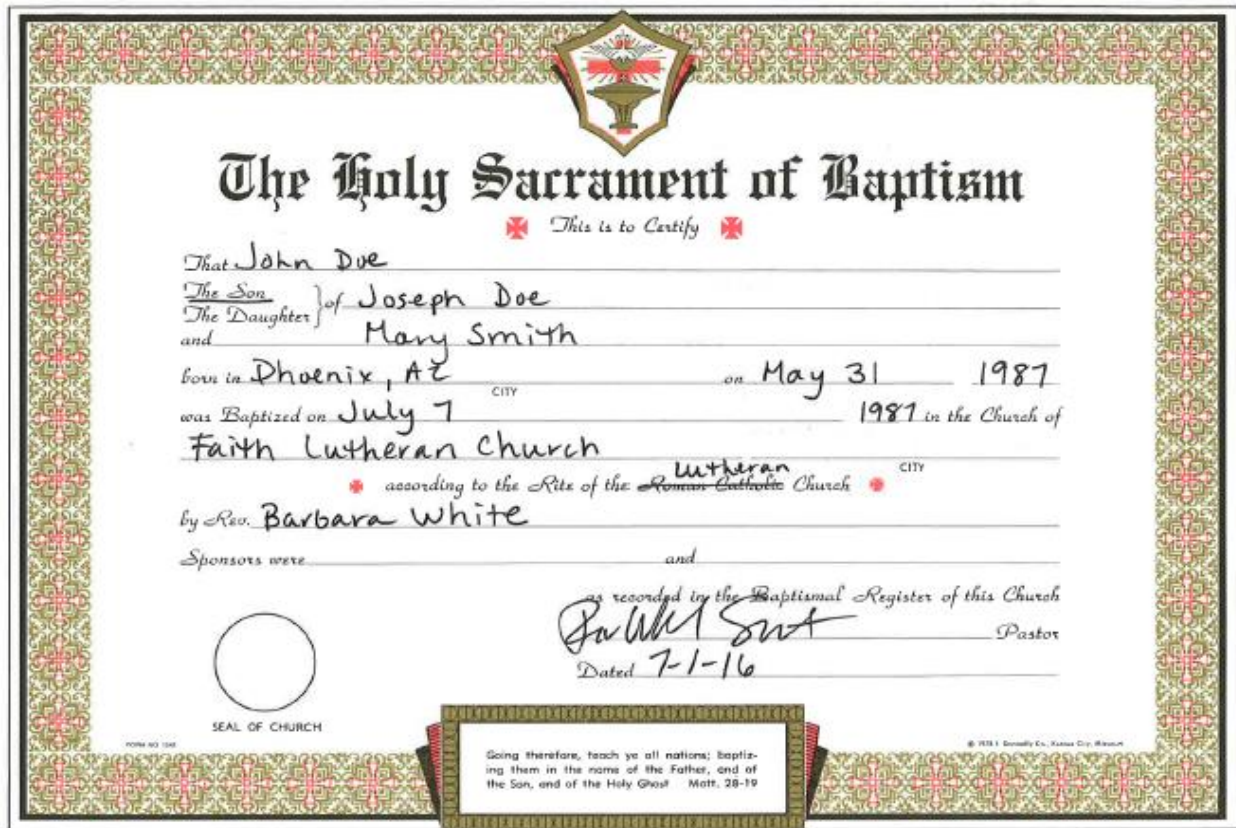 The Holy Sacrament of Baptism
This is to Certify
That John Doe
The Son
The Daughter } of Joseph Doe
and Mary Smith
born in Phoenix, AZ on May 31 1987
CITY
was Baptized on July 7 1987 in the Church of
Faith Lutheran Church
CITY
Lutheran
according to the Rite of the Roman Catholic Church
by Rev. Barbara White
Sponsors were and
as recorded in the Baptismal Register of this Church
Pastor
Dated 7-1-16
SEAL OF CHURCH
FORM NO
Going therefore, teach ye all nations; baptiz-
ing them in the name of the Father, and of
the Son, and of the Holy Ghost Matt. 28-19
Co., Kansas City, Missouri